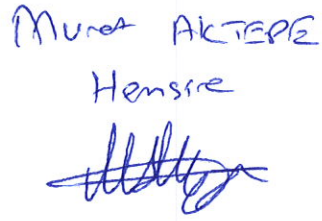 Murat AKTEPE
Hemşire